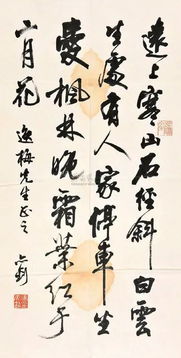 遠上寒山石徑斜白雲
生處有人家停車坐
愛楓林晚霜葉紅于
二月花 逸梅先生正之 士釗